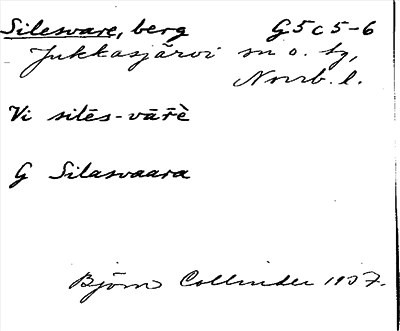 Silesvare, berg G5c5-6
Jukkasjärvi sn o. tg,
Norrb. l.
Vi silēs-vāřè
G Silasvaara
Björn Collinder 1937.